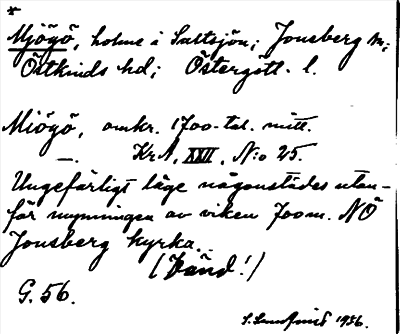 *
Mjögö, holme i Saltsjön; Jonsberg sn;
Östkinds hd; Östergötl. l.
Miögö, omkr. 1700-tal. mitt.
—. KrA, XXII, N:o 25.
Ungefärligt läge någonstädes utan-
för mynningen av viken 700 m. NÖ
Jonsberg kyrka.
(Vänd!)
G. 56.
1956.